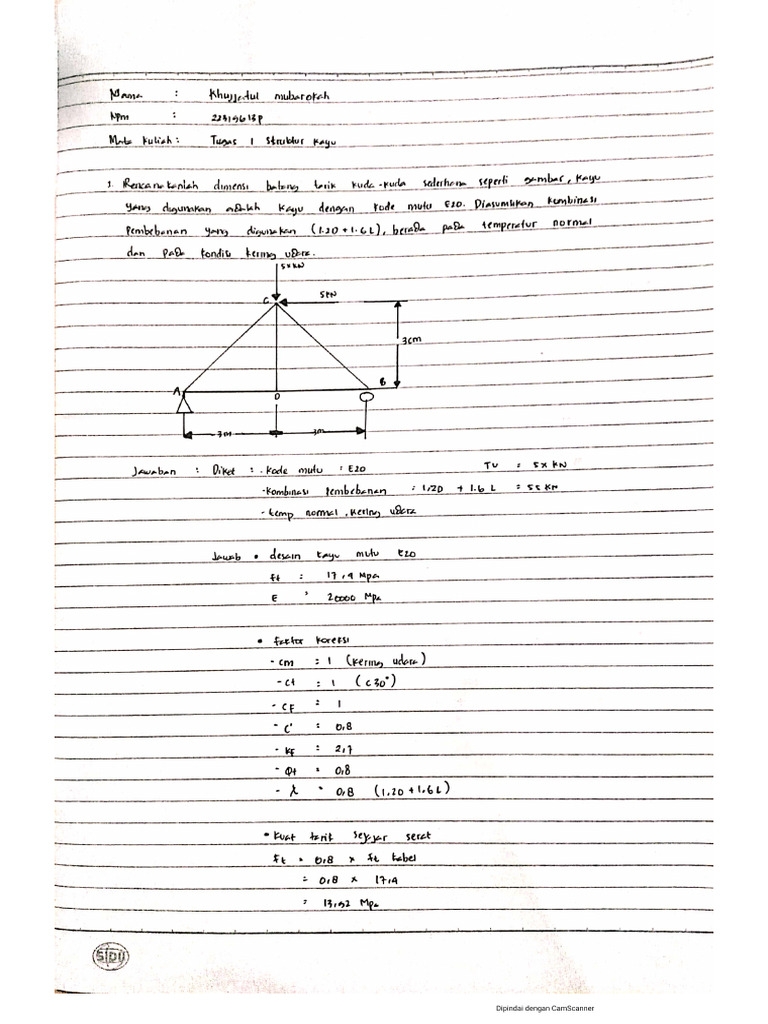 Nama : Khujjatul mubarokah
Npm : 22315613P
Mata kuliah : Tugas 1 Struktur Kayu
1. Rencanakanlah dimensi batang tarik kuda-kuda sederhana seperti gambar, kayu
yang digunakan adalah kayu dengan kode mutu E20. Diasumsikan kombinasi
Pembebanan yang digunakan (1.2D + 1.6L), berada pada temperatur normal
dan pada kondisi kering udara.
5x KN
C
5KN
3cm
A
D
B
3m
3m
Jawaban : Diket : - Kode mutu : E20 Tu = 5x KN
- Kombinasi Pembebanan = 1,2D + 1.6 L = 55 KN
- temp normal, kering udara
Jawab • desain kayu mutu E20
ft : 17,4 Mpa
E : 20000 Mpa
• faktor koreksi
- cm = 1 (kering udara)
- Ct : 1 (<30°)
- CF = 1
- C' = 0,8
- KF = 2,7
- Φt = 0,8
- λ = 0,8 (1,2D + 1,6L)
• Kuat tarik sejajar serat
ft = 0,8 x ft tabel
= 0,8 x 17,4
= 13,92 Mpa
SIDU
Dipindai dengan CamScanner